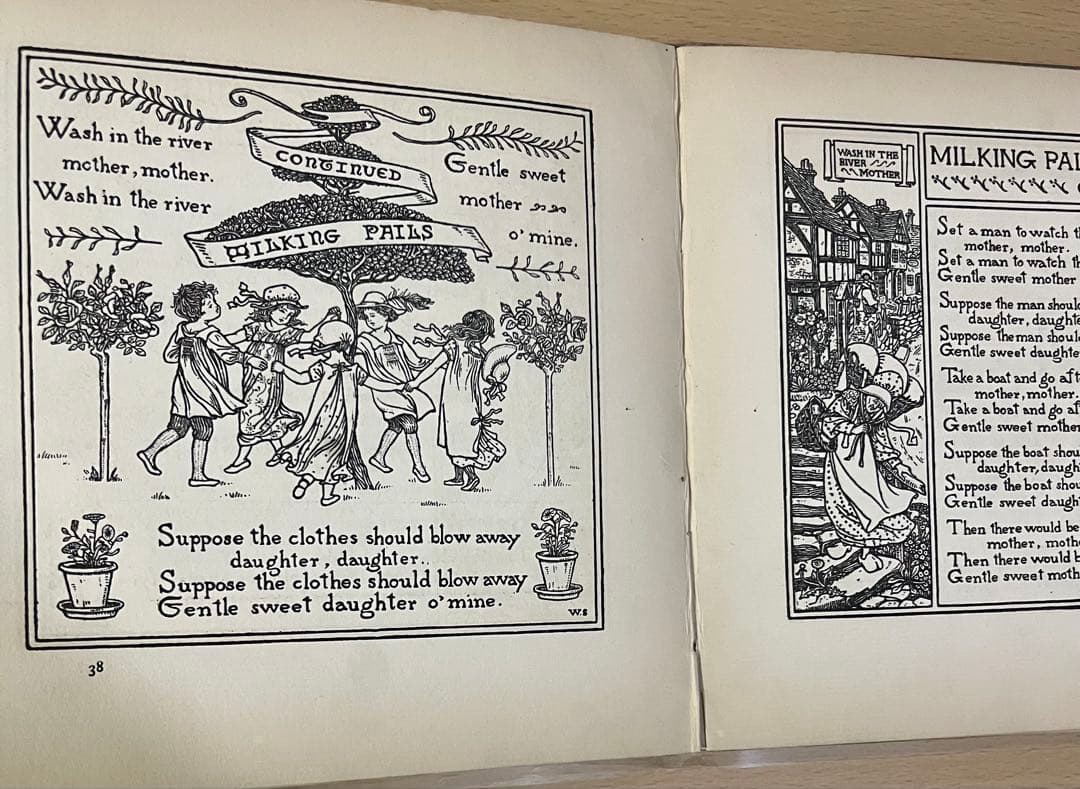 Wash in the river
mother, mother.
Wash in the river
Gentle sweet
mother
o' mine.
CONTINUED
MILKING PAILS
Suppose the clothes should blow away
daughter, daughter..
Suppose the clothes should blow away
Gentle sweet daughter o' mine.
W.S
38
WASH IN THE
RIVER
MOTHER
MILKING
Set a man to watch
mother, mother.
Set a man to watch
Gentle sweet mother
Suppose the man
daughter,
Suppose the man
Gentle sweet
Take a boat and go
mother, mother.
Take a boat and go
Gentle sweet mother
Suppose the boat
daughter,
Suppose the boat
Gentle sweet
Then there would be
mother,
Then there would
Gentle sweet